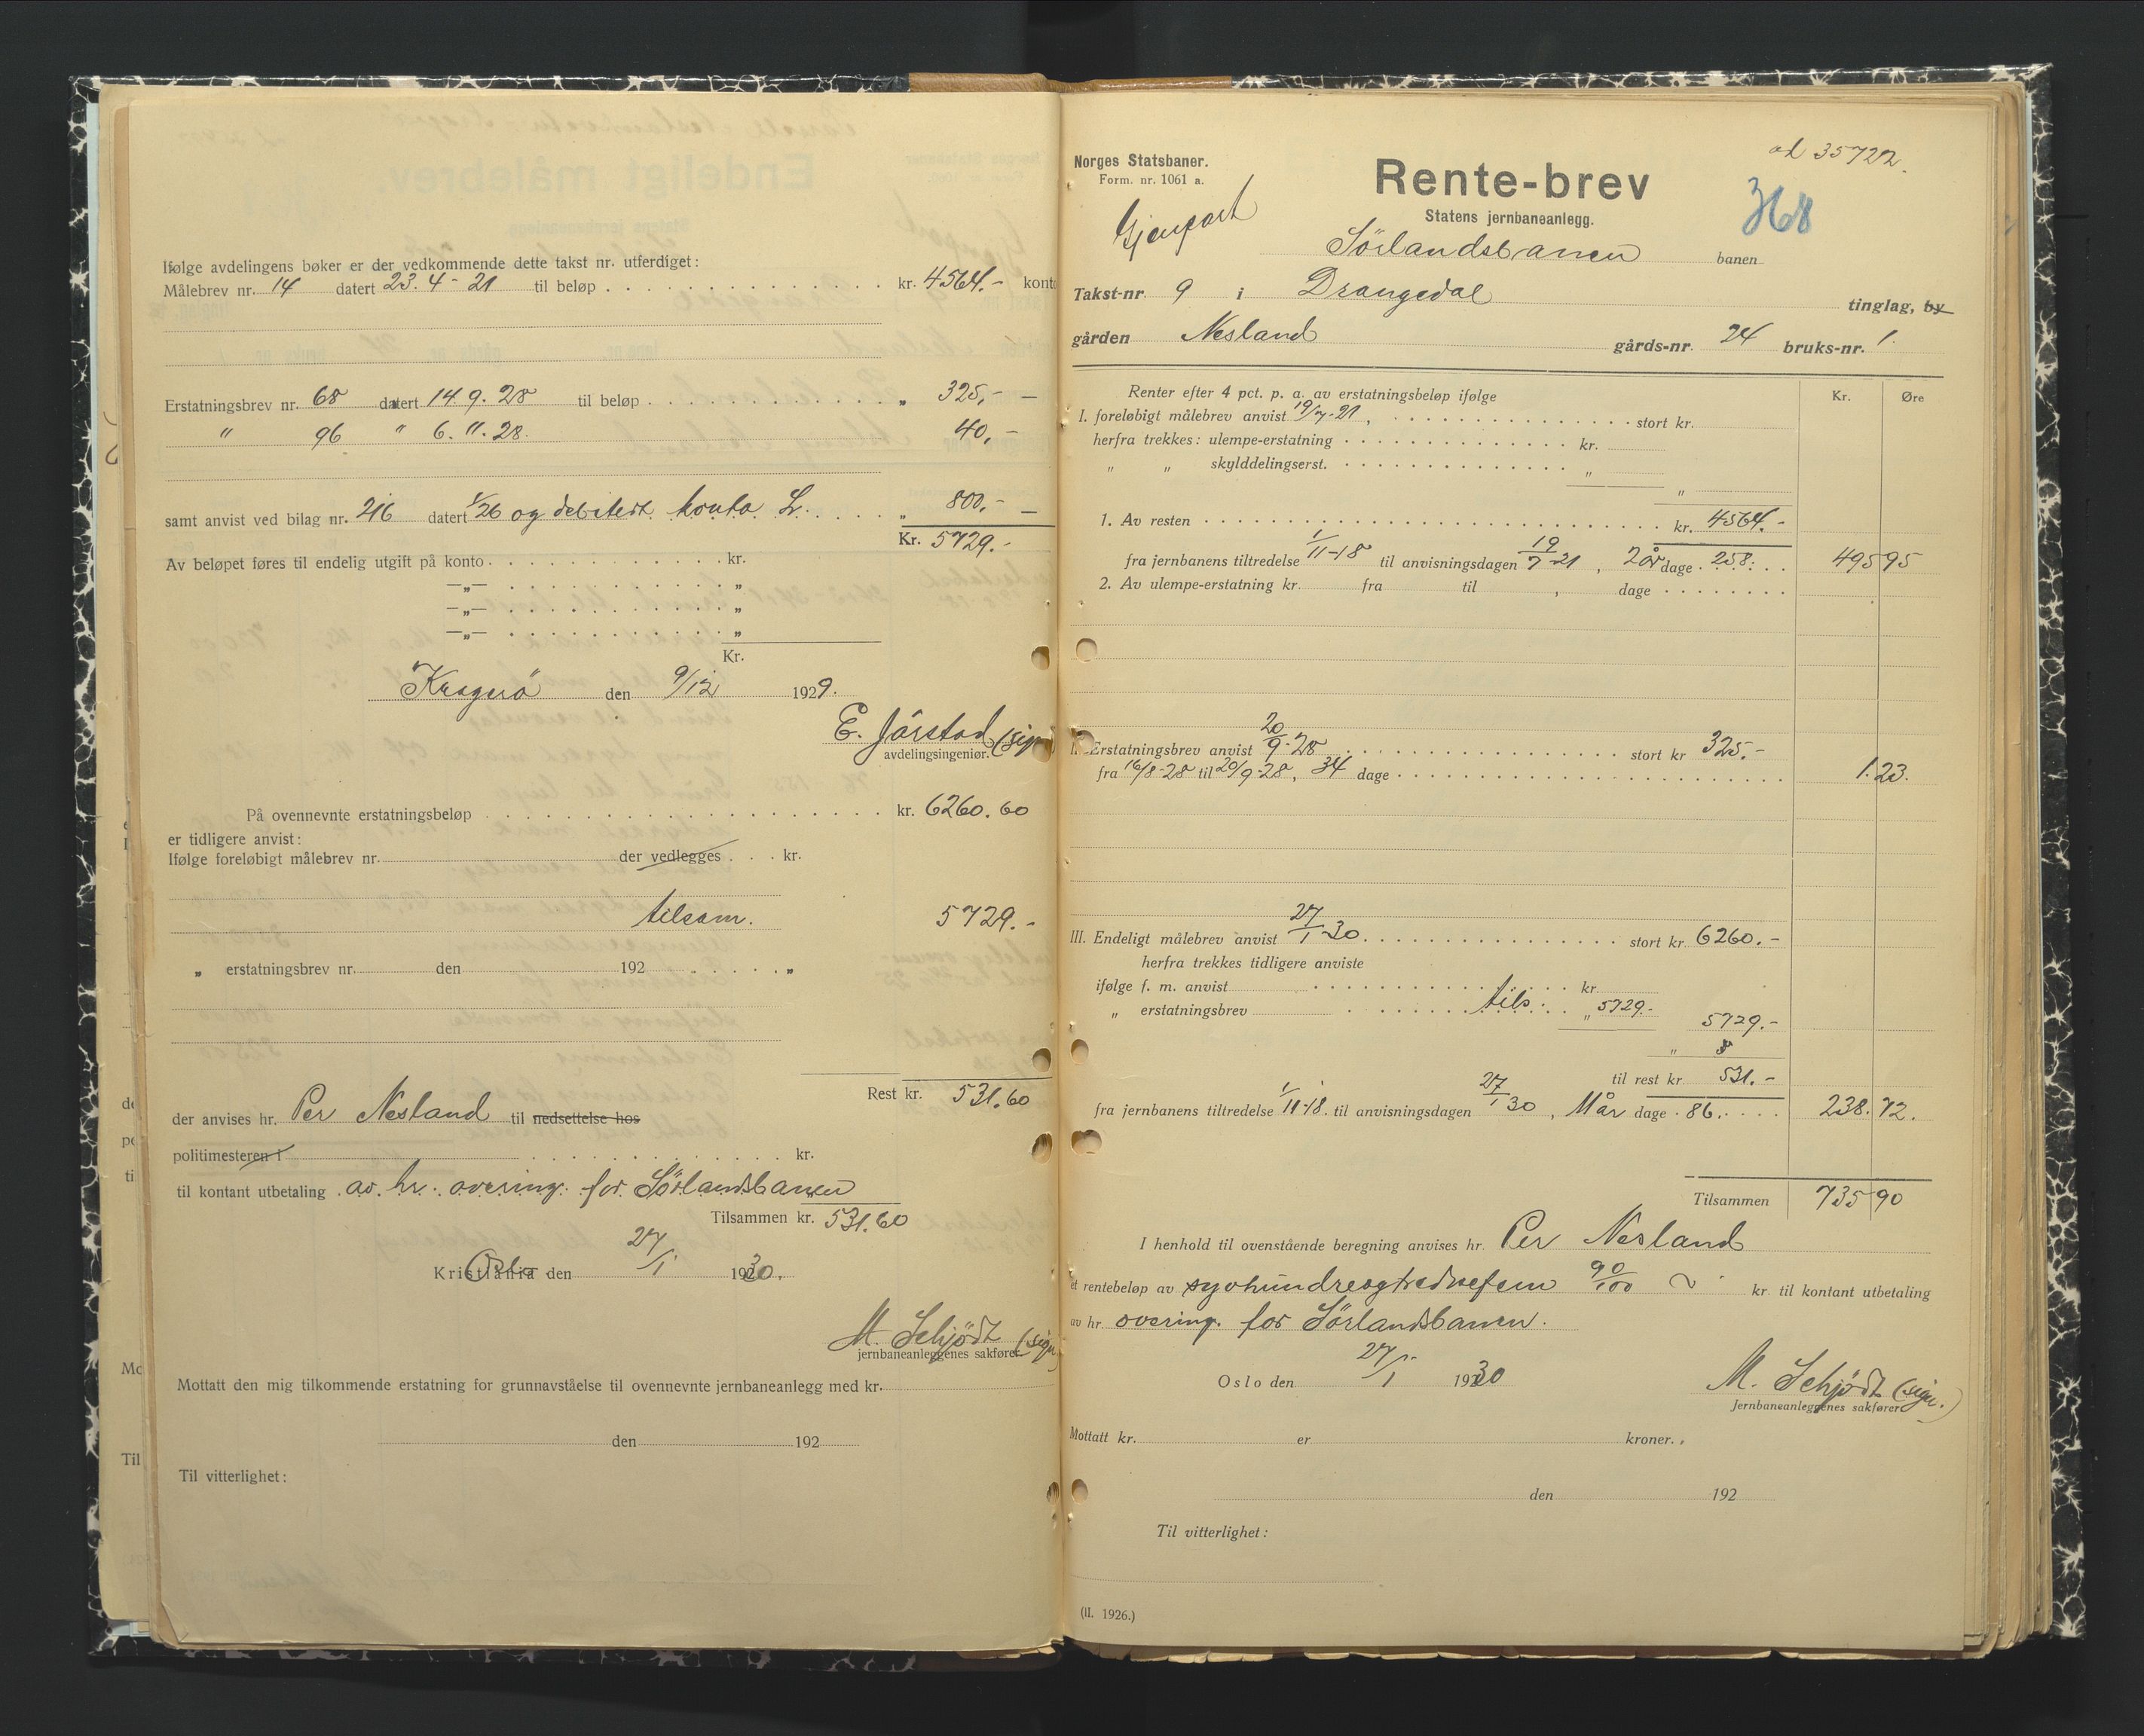 Ifølge avdelingens bøker er der vedkommende dette takst nr. utferdiget:
Målebrev nr. 14 datert 23.4-21 til beløp kr. 4564.- konto
Erstatningsbrev nr. 68 datert 14 9. 28 til beløp „ 325,- —
" 96 " 6. 11. 28. 40,-
samt anvist ved bilag nr. 216 datert 1/26 og debitert konto L. „ 800,- —
Kr. 5729.-
Av beløpet føres til endelig utgift på konto kr.
—„— „
—„— „
—„— „
Kr.
Kragerö den 9/12 1929.
E. Jörstad (sign
avdelingsingeniør.
På ovennevnte erstatningsbeløp kr. 6260.60
er tidligere anvist:
Ifølge foreløbigt målebrev nr. der vedlegges kr.
tilsam. 5729.-
„ erstatningsbrev nr. den 192 „
Rest kr. 531.60
der anvises hr. Per Nesland til nedsettelse hos
politimesteren i kr.
til kontant utbetaling av hr. overing. for Sörlandsbanen
Tilsammen kr. 531.60
Kristiania Oslo den 27/1 1930.
M. Schjödt (sign
jernbaneanleggenes sakfører.
Mottatt den mig tilkommende erstatning for grunnavståelse til ovennevnte jernbaneanlegg med kr.
den 192
Til vitterlighet:
ad 35722.
Norges Statsbaner.
Form. nr. 1061 a.
Rente-brev
368
Gjenpart
Statens jernbaneanlegg.
Sörlandsbanen banen
Takst-nr. 9 i Drangedal tinglag, by
gården Nesland gårds-nr. 24 bruks-nr. 1.
Renter efter 4 pct. p. a. av erstatningsbeløp ifølge Kr. Øre
I. foreløbigt målebrev anvist 19/7-21, stort kr.
herfra trekkes: ulempe-erstatning kr.
„ „ skylddelingserst. „
„
1. Av resten kr. 4564.-
fra jernbanens tiltredelse 1/11-18 til anvisningsdagen 19/7 21, 2 år dage 258. 495 95
2. Av ulempe-erstatning kr. fra til , dage
II. Erstatningsbrev anvist 20/9-28 stort kr 325.-
fra 16/8-28 til 20/9-28, 34 dage 1.23.
III. Endeligt målebrev anvist 27/1-30 stort kr 6260.-
herfra trekkes tidligere anviste
ifølge f. m. anvist kr.
„ erstatningsbrev tils. „ 5729.- 5729.-
„
til rest kr 531.-
fra jernbanens tiltredelse 1/11-18. til anvisningsdagen 27/1 30, 11 år dage 86. 238.72.
Tilsammen 735 90
I henhold til ovenstående beregning anvises hr. Per Nesland
et rentebeløp av syvhundreogtredvefem 90/100 kr. til kontant utbetaling
av hr. overing. for Sörlandsbanen.
Oslo den 27/1 1930
M. Schjödt (sign.)
Jernbaneanleggenes sakfører
Mottatt kr. er kroner.
den 192
Til vitterlighet:
(II. 1926.)